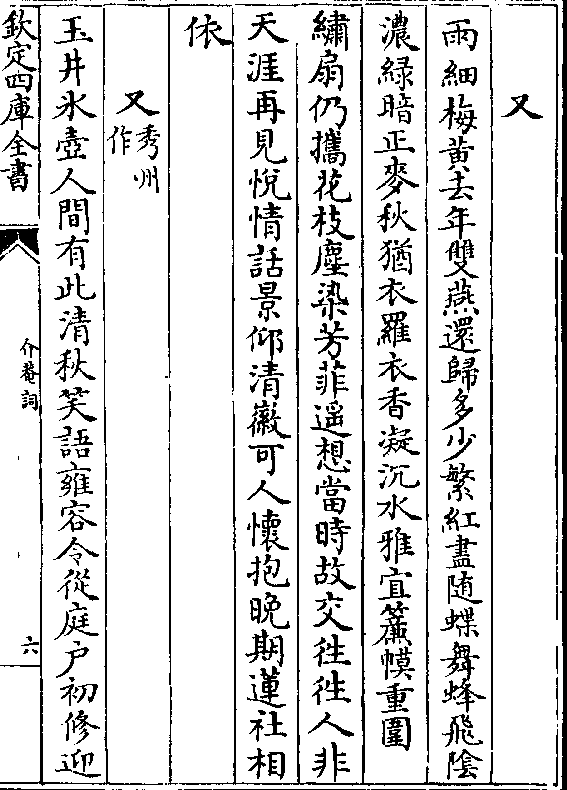 又
雨細梅黄去年雙燕還歸多少繁紅盡随蝶舞蜂飛陰
濃緑暗正麥秋猶衣羅衣香凝沉水雅宜簾幙重圍
繡扇仍攜花枝塵染芳菲遥想當時故交徃徃人非
天涯再見恱情話景仰清徽可人懷抱晚期蓮社相
依
又秀州作
玉井氷壺人間有此清秋笑語雍容令從庭户初修迎
欽定四庫全書
介菴詞
六